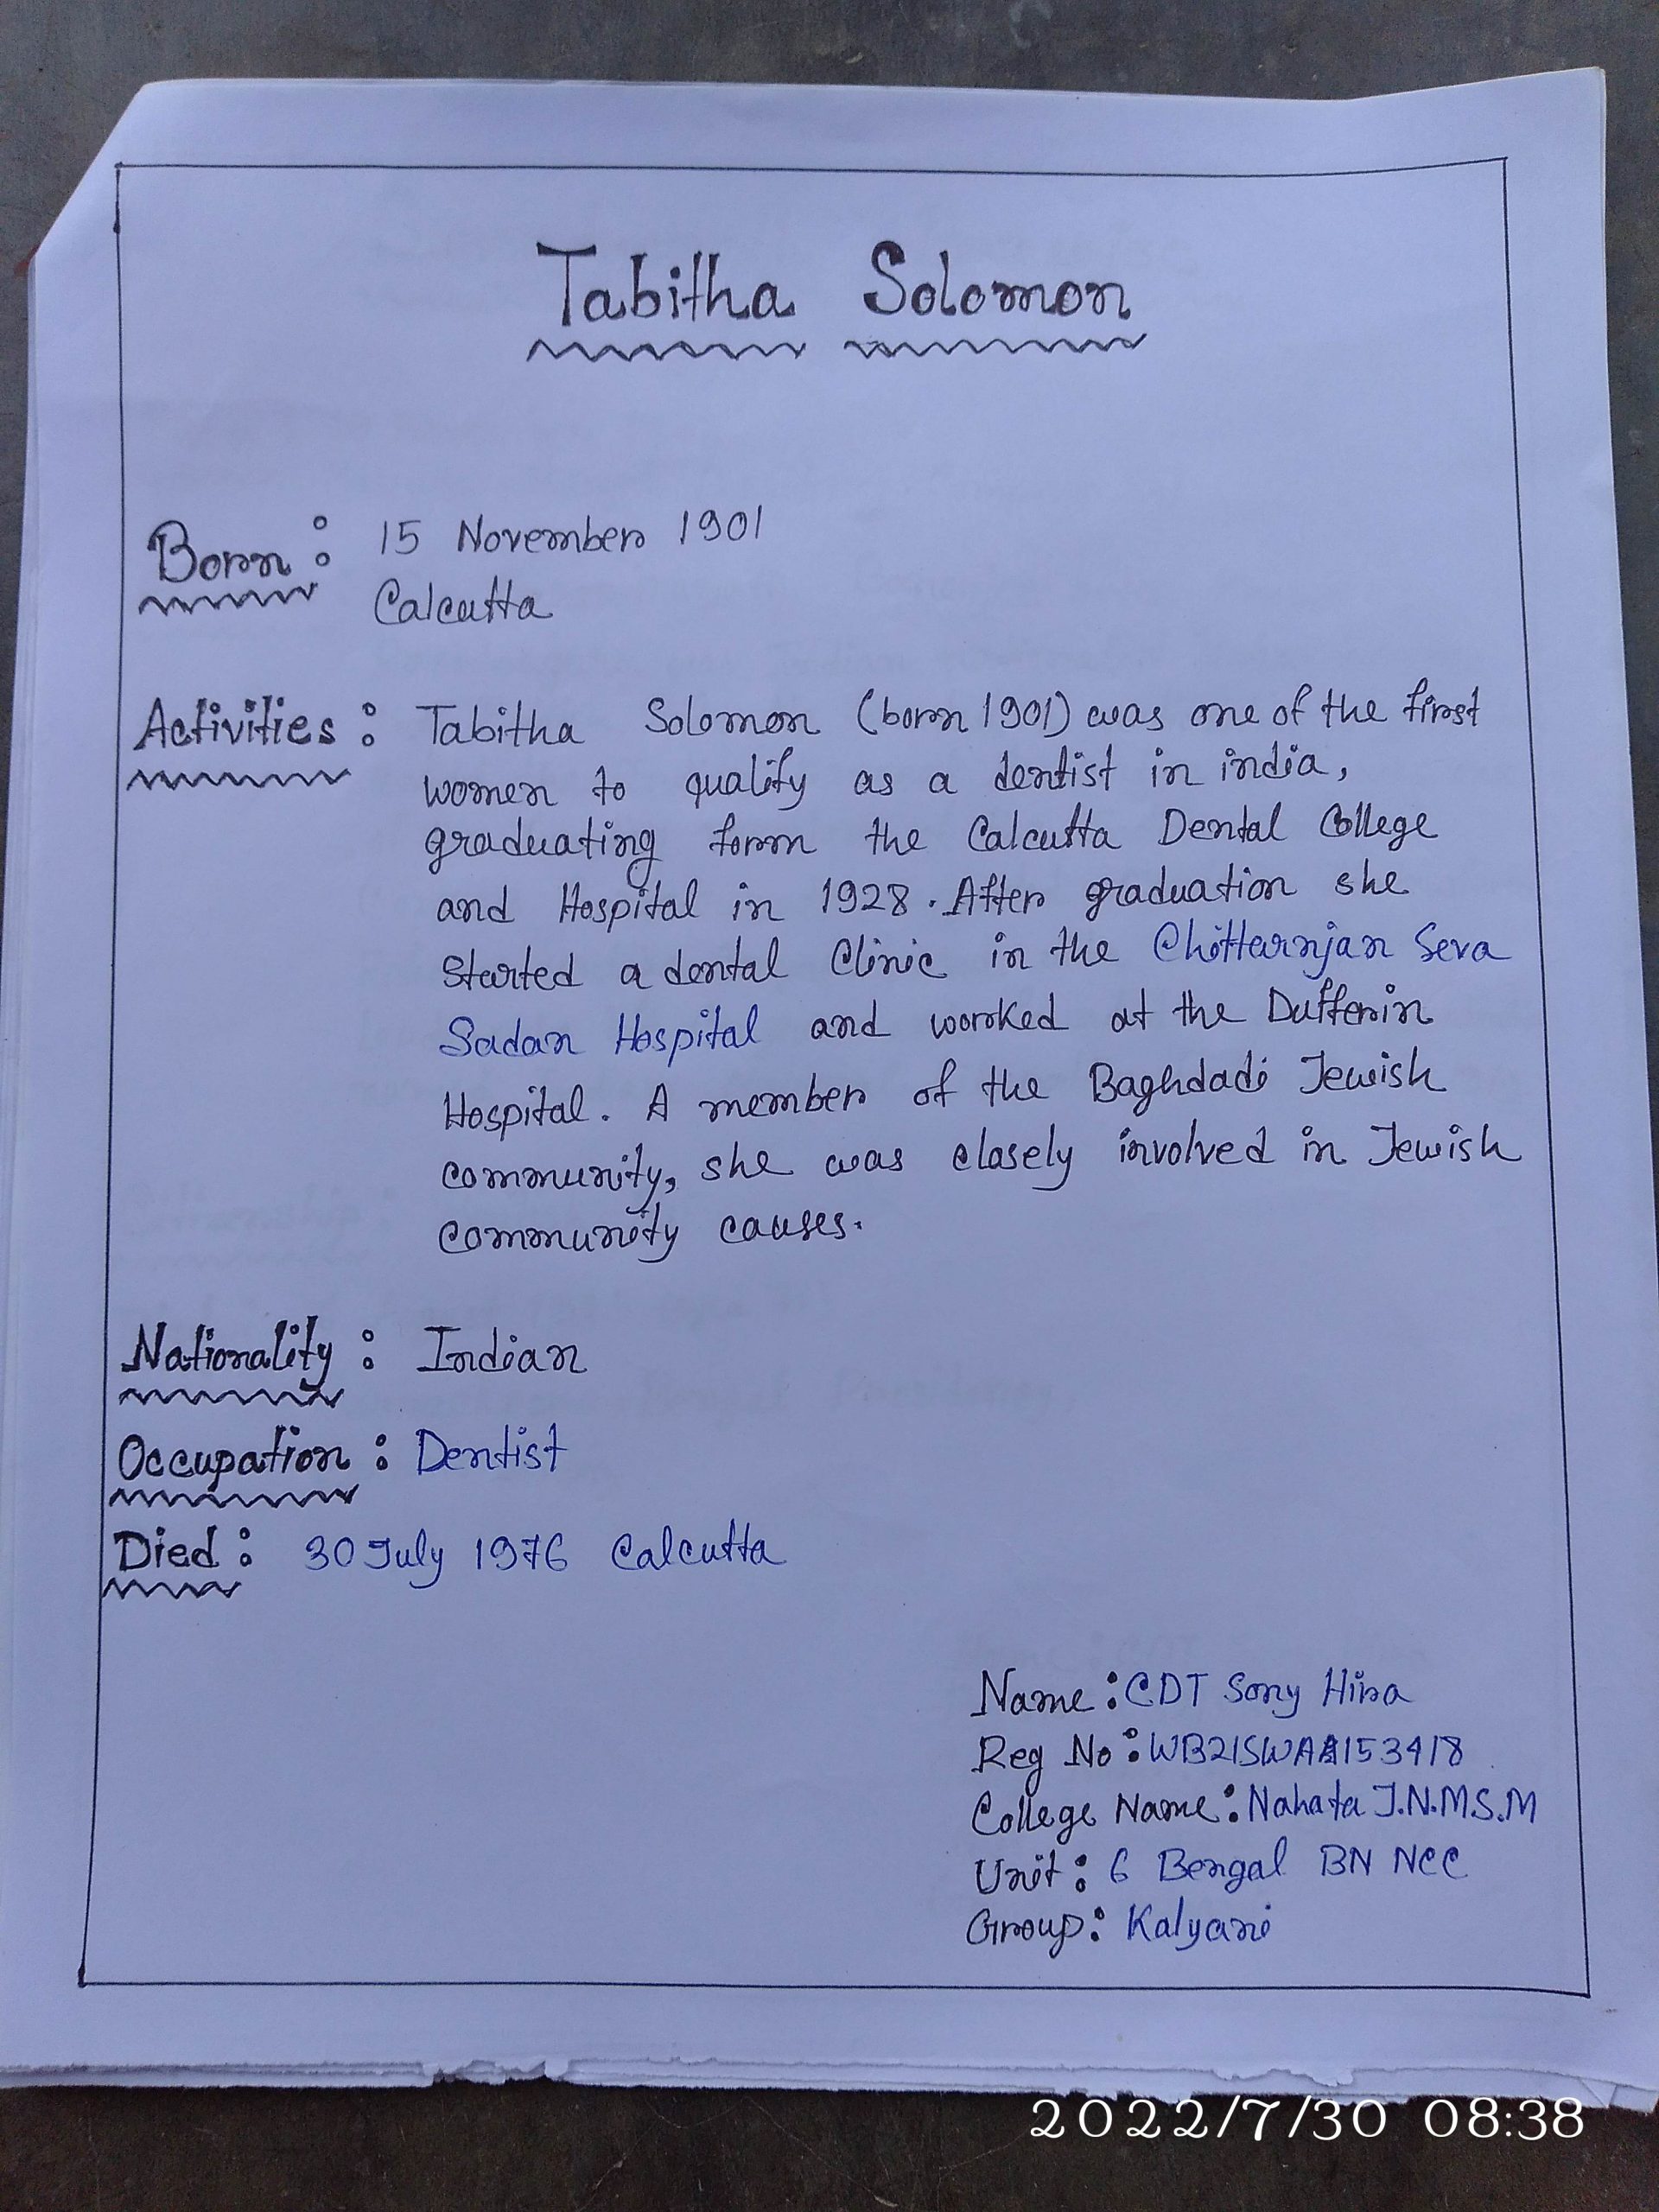 Tabitha Solomon
Born: 15 November 1901
Calcutta
Activities: Tabitha Solomon (born 1901) was one of the first
women to qualify as a dentist in india,
graduating form the Calcutta Dental College
and Hospital in 1928. After graduation she
started a dental Clinic in the Chittarnjan Seva
Sadan Hospital and worked at the Dufferin
Hospital. A member of the Baghdadi Jewish
community, she was closely involved in Jewish
community causes.
Nationality: Indian
Occupation: Dentist
Died: 30 July 1976 Calcutta
Name: CDT Sony Hira
Reg No: WB21SWAA153418
College Name: Nahata J.N.M.S.M
Unit: 6 Bengal BN NCC
Group: Kalyani
2022/7/30 08:38